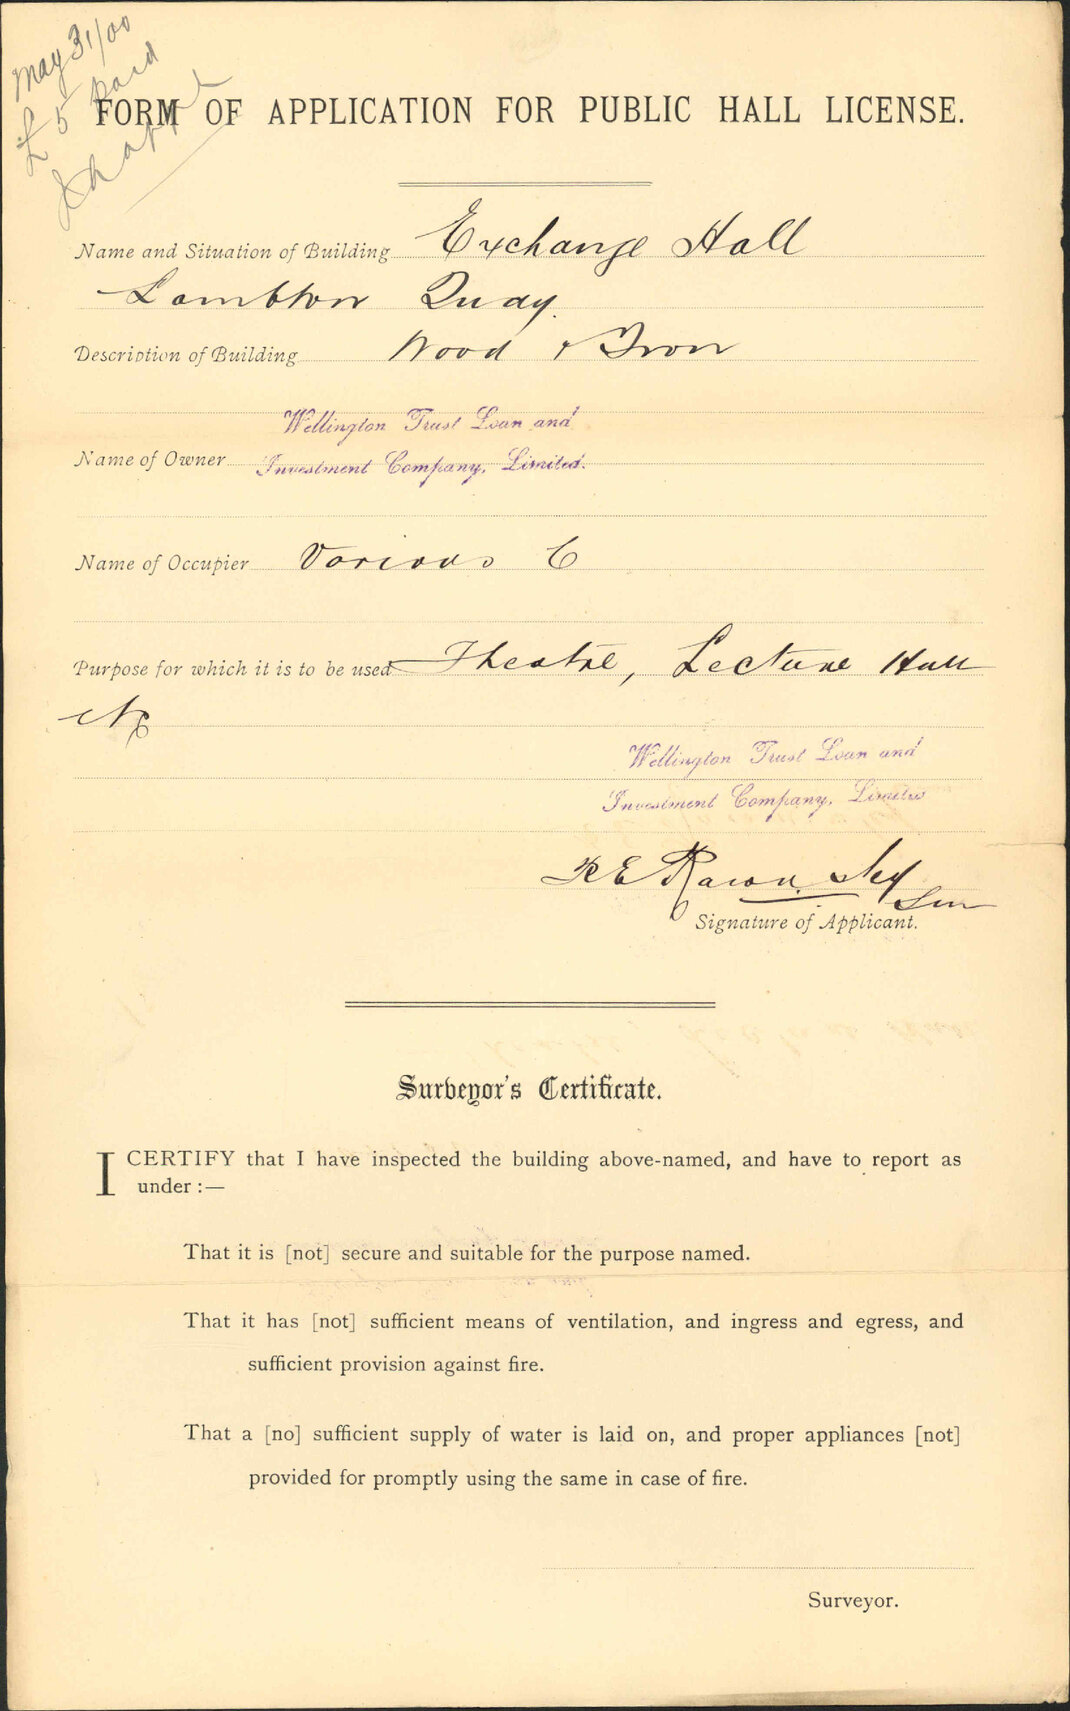 May 31/00
£5 paid
FORM OF APPLICATION FOR PUBLIC HALL LICENSE.
Name and Situation of Building Exchange Hall
Lambton Quay.
Description of Building Wood & Iron
Wellington Trust Loan and
Name of Owner Investment Company, Limited.
Name of Occupier Various
Purpose for which it is to be used Theatre, Lecture Hall
etc
Wellington Trust Loan and
Investment Company, Limited
R E
Signature of Applicant.
Surveyor's Certificate.
I CERTIFY that I have inspected the building above-named, and have to report as
under :—
That it is [not] secure and suitable for the purpose named.
That it has [not] sufficient means of ventilation, and ingress and egress, and
sufficient provision against fire.
That a [no] sufficient supply of water is laid on, and proper appliances [not]
provided for promptly using the same in case of fire.
Surveyor.